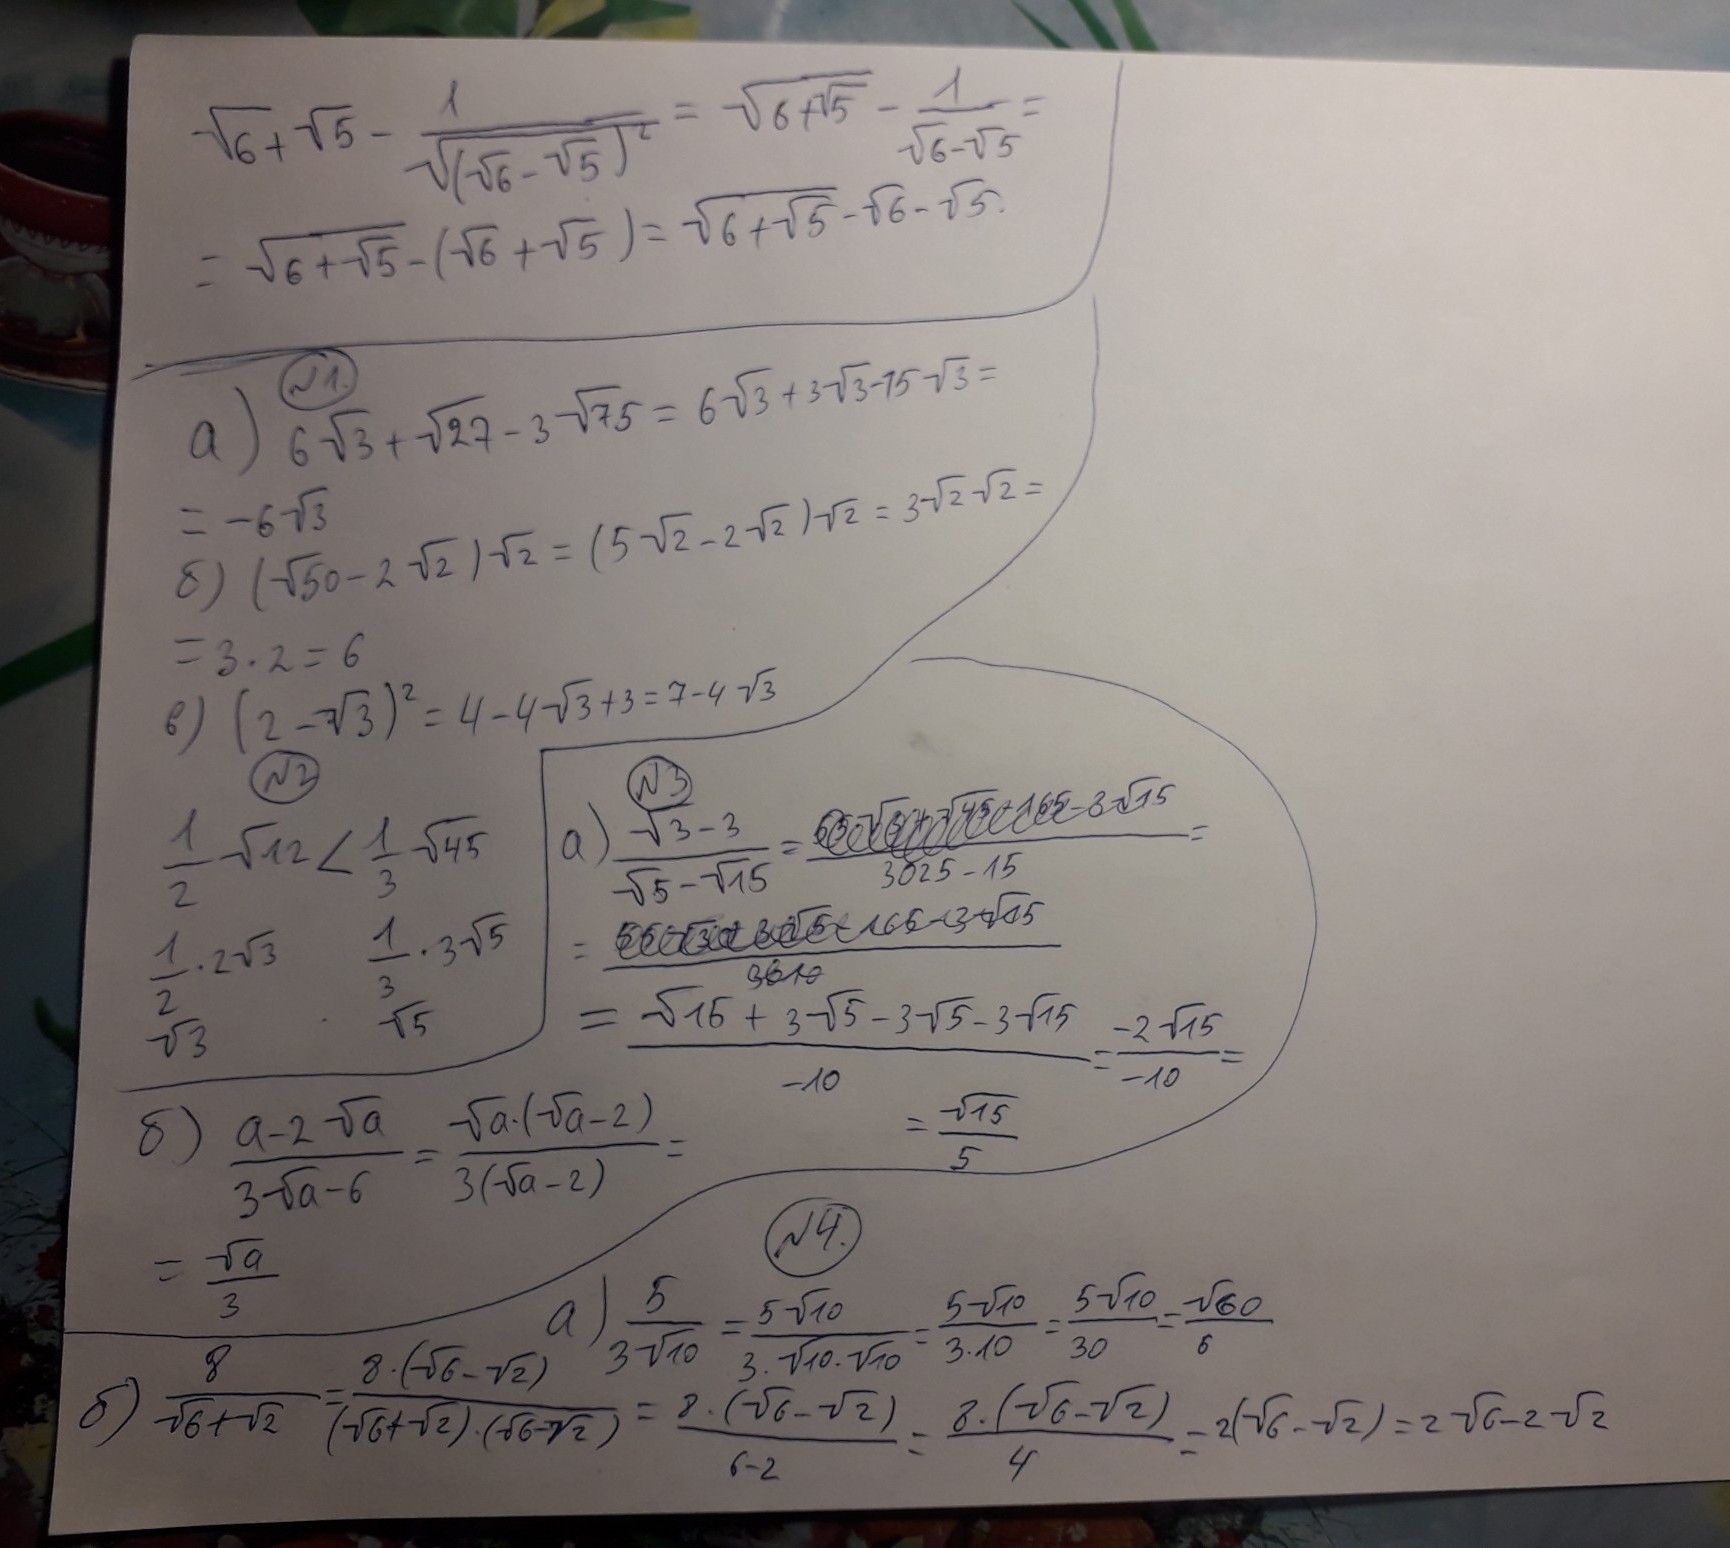 √6+√5 - 1/√(√6-√5)² = √(6+√5) - 1/(√6-√5) =
= √(6+√5) - (√6+√5) = √(6+√5) - √6 - √5.
№1.
а) 6√3+√27-3√75 = 6√3+3√3-15√3 =
= -6√3
б) (√50-2√2)√2 = (5√2-2√2)√2 = 3√2√2 =
= 3·2=6
в) (2-√3)² = 4-4√3+3 = 7-4√3
№2
1/2 √12 < 1/3 √45
1/2 · 2√3   1/3 · 3√5
√3   √5
№3
а) (√3-3)/(√5-√15) = /(3025-15) =
=
= (√15+3√5-3√5-3√15)/(-10) = (-2√15)/(-10) =
= √15/5
б) (a-2√a)/(3√a-6) = (√a·(√a-2))/(3(√a-2)) =
= √a/3
№4.
а) 5/(3√10) = 5√10/(3·√10·√10) = 5√10/(3·10) = 5√10/30 = √60/6
б) 8/(√6+√2) = 8·(√6-√2)/((√6+√2)·(√6-√2)) = 8·(√6-√2)/(6-2) = 8·(√6-√2)/4 = 2(√6-√2) = 2√6-2√2